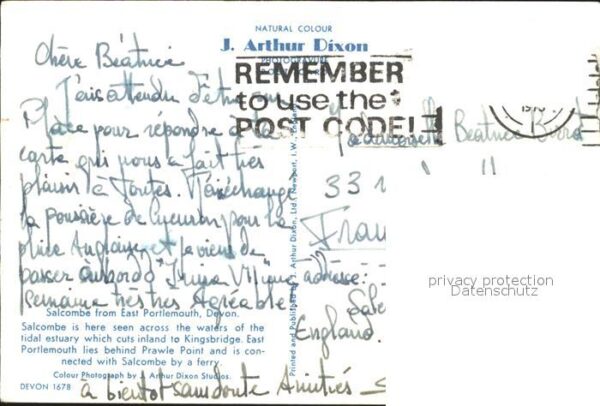 NATURAL COLOUR
J. Arthur Dixon
PHOTOGRAVURE
REMEMBER
to use the
POST CODE!
1970
Chère Béatrice
J'ais attendu d'être sur
Place pour répondre à ta
carte qui nous a fait très
plaisir à Toutes.
la poussière de pour la
pluie Anglaise et je viens de
passer à bord d' une
semaine très très Agréable
Mademoiselle Béatrice
" "
33
Fran
adresse:
Salc
England.
à bientôt sans doute Amitiés
privacy protection
Datenschutz
Printed and Published by J. Arthur Dixon, Ltd., Newport, I.W.
Salcombe from East Portlemouth, Devon.
Salcombe is here seen across the waters of the
tidal estuary which cuts inland to Kingsbridge. East
Portlemouth lies behind Prawle Point and is con-
nected with Salcombe by a ferry.
Colour Photograph by J. Arthur Dixon Studios.
DEVON 1678